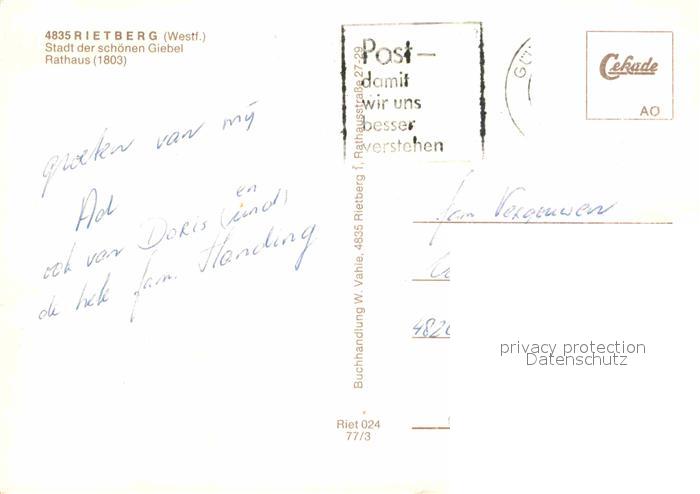 4835 RIETBERG (Westf.)
Stadt der schönen Giebel
Rathaus (1803)
Post –
damit
wir uns
besser
verstehen
Cekade
AO
groeten van mij
Ad
en
ook van Doris (und)
de hele fam. Handing
Buchhandlung W. Vahle, 4835 Rietberg 1, Rathausstraße 27-29
fam Vergouwen
482
privacy protection
Datenschutz
Riet 024
77/3